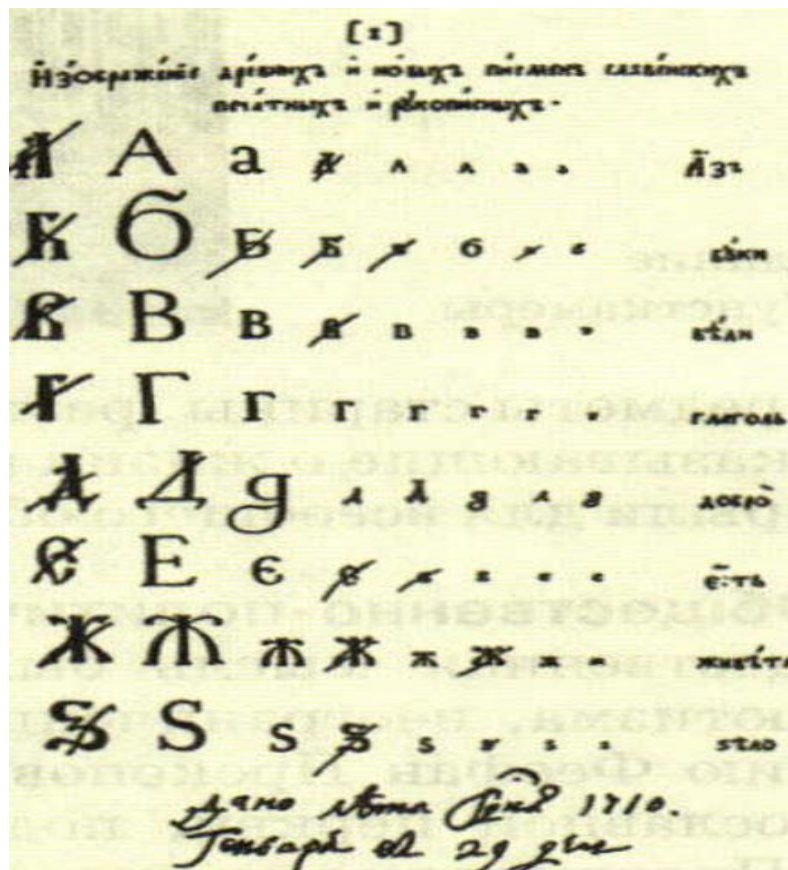 [1]
Изображенїе древнихъ и новыхъ писменъ славенскихъ
печатныхъ и рукописныхъ.
А А а А А А а а Азъ
Б б Б Б б б б б буки
В В В В В в в в вѣди
Г Г Г Г Г г г г глаголь
Д Д д д Д д д д добро
Є Е Є є є е е е єсть
Ж Ж Ж Ж ж Ж ж ж живѣте
Ѕ Ѕ Ѕ Ѕ ѕ ѕ ѕ ѕ ѕѣло
Дано лѣта 1710.
Генваря 29 дня